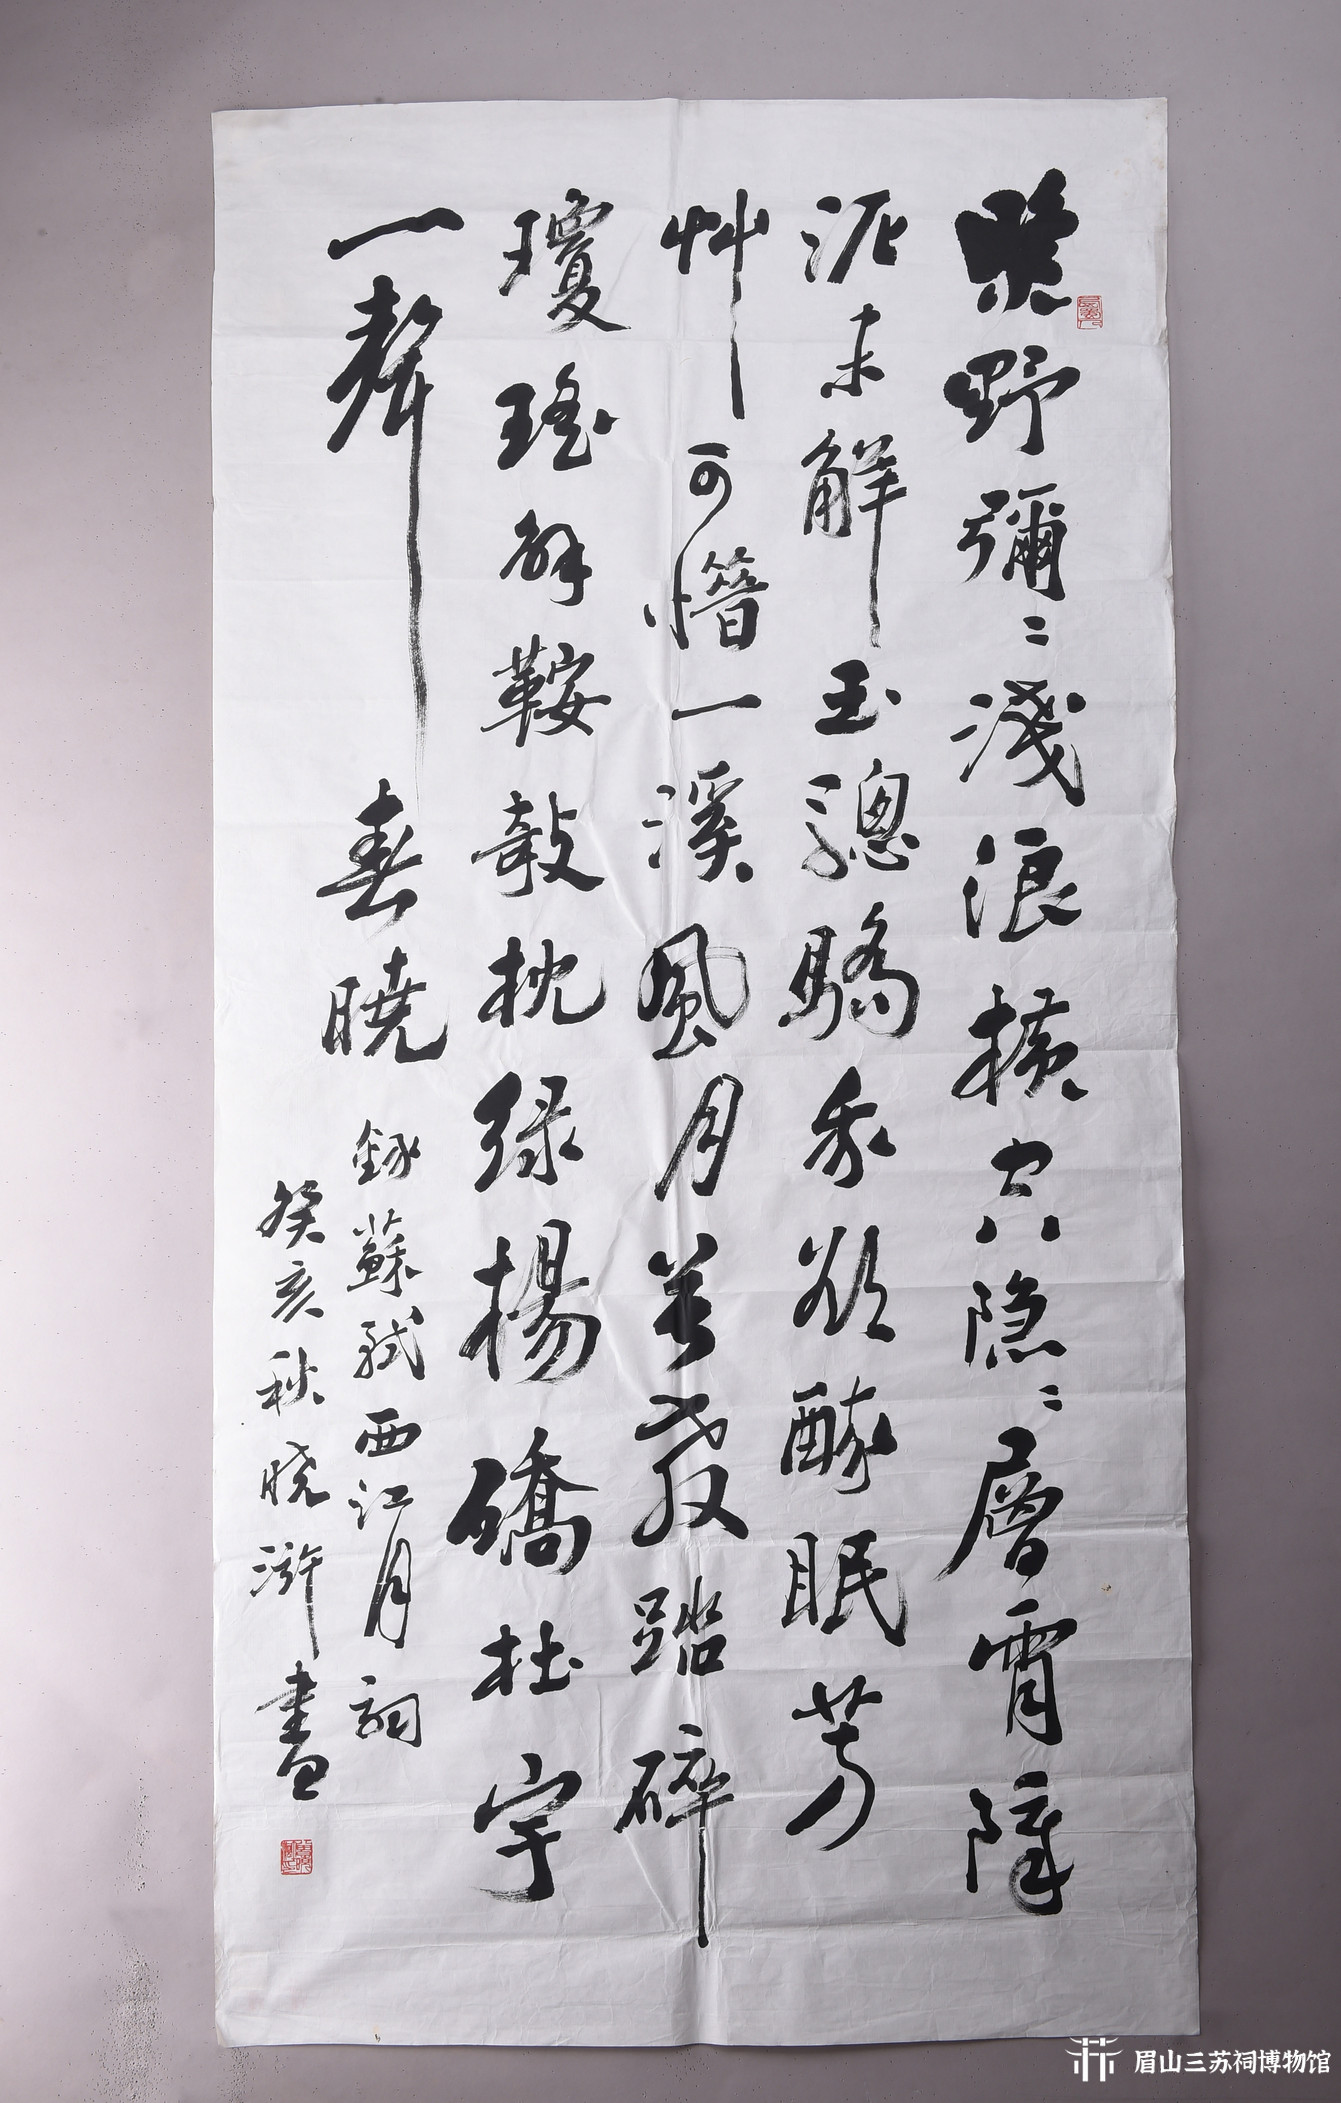 照野彌〻淺浪橫空隐〻層霄障
泥未解玉驄驕我欲醉眠芳
艸可惜一溪風月莫教踏碎
瓊瑤解鞍敧枕緑楊橋杜宇
一聲春曉 錄蘇軾西江月詞
癸亥秋晓滸書
眉山三苏祠博物馆